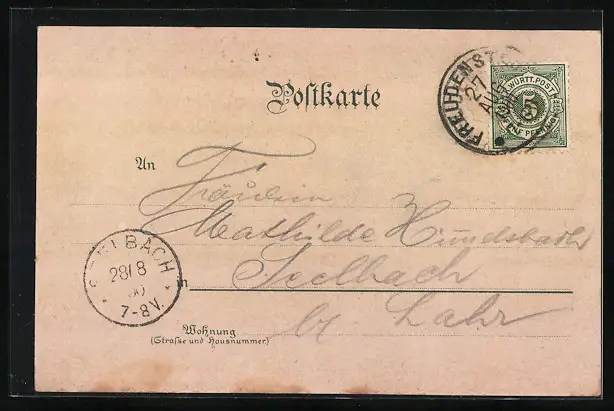 Postkarte
FREUDENST
27
AUG
K. WÜRTT. POST
5
FÜNF PFENNIG
An
Fräulein
Mathilde Hundsbacher
Seelbach
in
by. Lahr
SEELBACH
28/8
7-8V.
Wohnung
(Straße und Hausnummer)